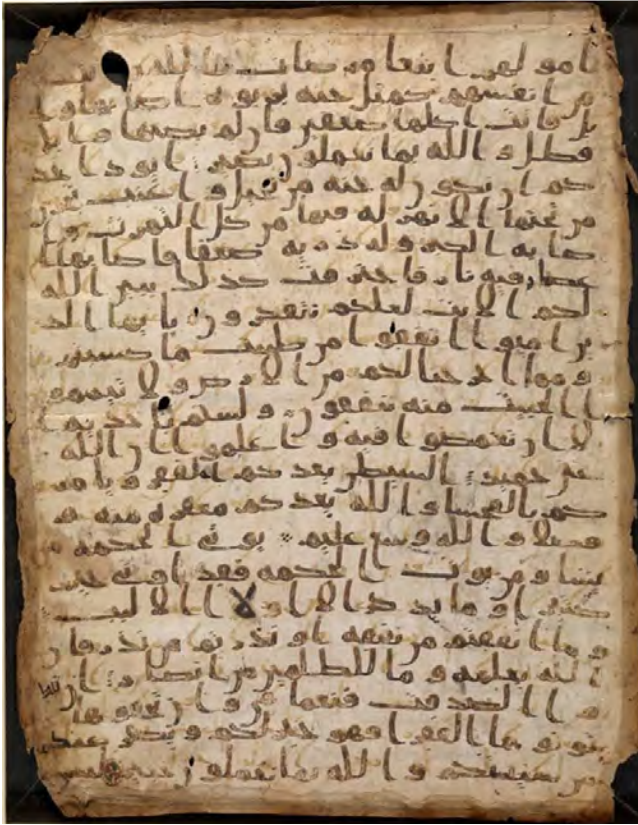 امولهم ابتغا مرضات الله وتثبيتا
من انفسهم كمثل جنة بربوة اصابها وا
بل فاتت اكلها ضعفين فان لم يصبها وابل
فطل والله بما تعملون بصير ايود احد
كم ان تكون له جنة من نخيل واعنب تجري
من تحتها الانهر له فيها من كل الثمرت وا
صابه الكبر وله ذرية ضعفا فاصابها ا
عصار فيه نار فاحترقت كذلك يبين الله
لكم الايت لعلكم تتفكرون يايها الذ
ين امنوا انفقوا من طيبت ما كسبتم
ومما اخرجنا لكم من الارض ولا تيمموا
الخبيث منه تنفقون ولستم باخذيه ا
لا ان تغمضوا فيه واعلموا ان الله
غني حميد الشيطن يعدكم الفقر ويامر
كم بالفحشا والله يعدكم مغفرة منه و
فضلا والله وسع عليم يوتي الحكمة من
يشا ومن يوت الحكمة فقد اوتي خيرا
كثيرا وما يذكر الا اولا الالبب
وما انفقتم من نفقة او نذرتم من نذر فان
الله يعلمه وما للظلمين من انصار ان تبد
وا الصدقت فنعما هي وان تخفوها
وتوتوها الفقرا فهو خير لكم ويكفر عنكم
من سيتكم والله بما تعملون خبير ليس